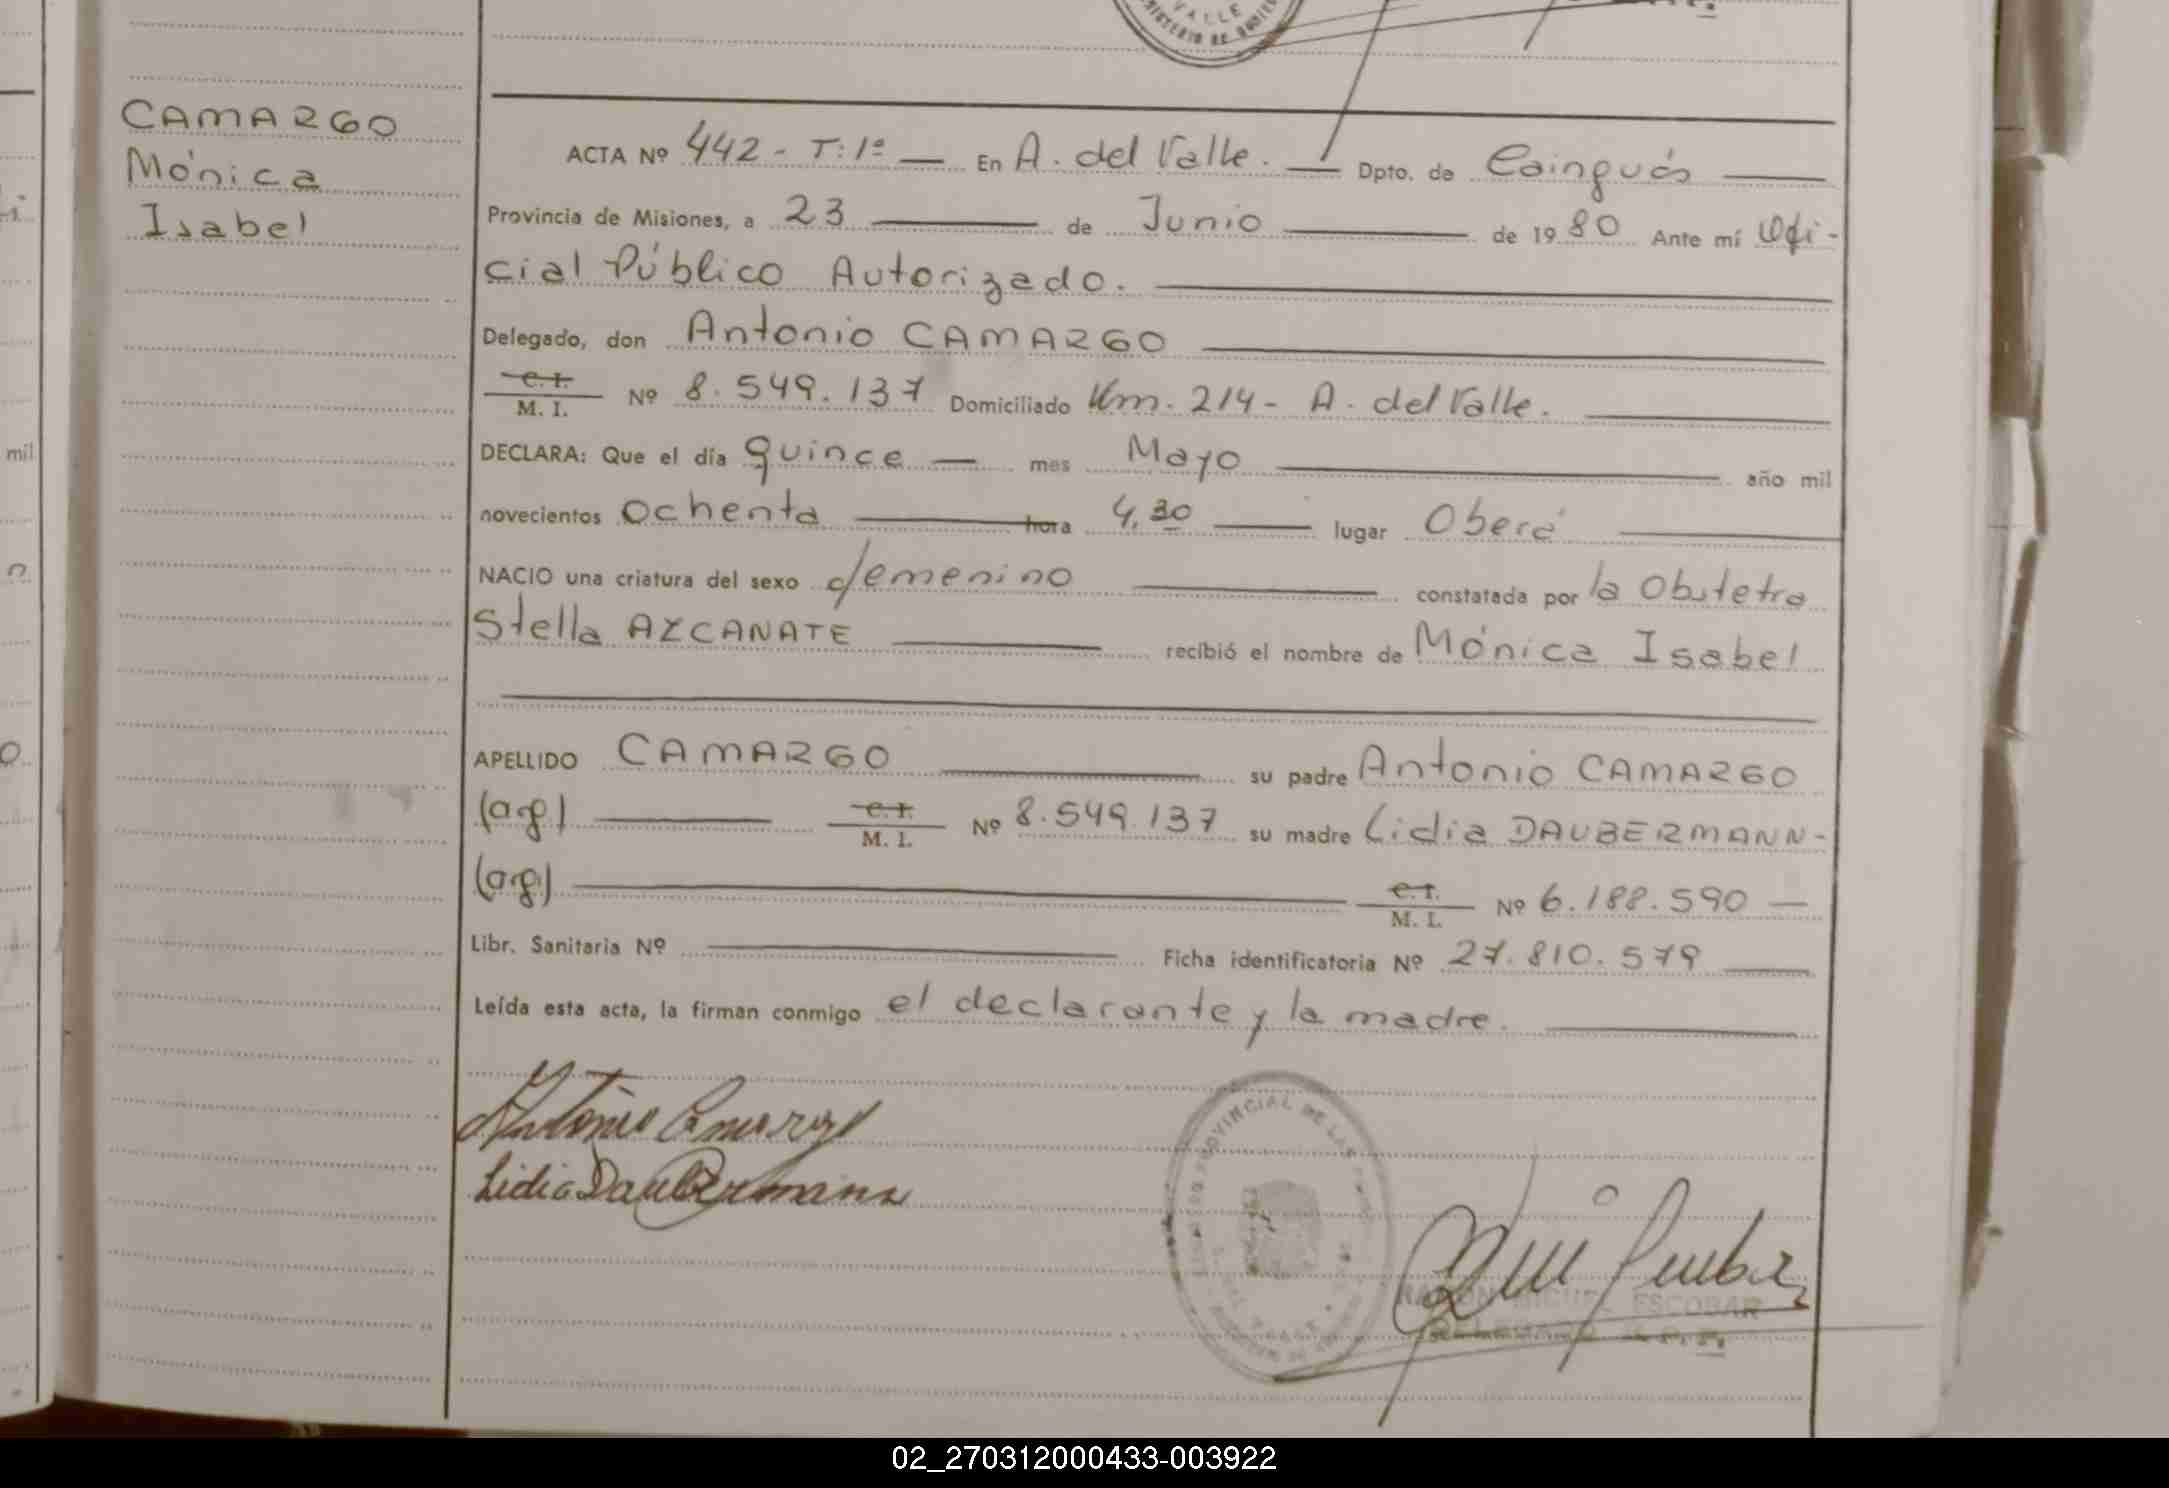 VALLE
CAMARGO
Mónica
Isabel
ACTA Nº 442 - T: 1º — En A. del Valle. — Dpto. de Cainguás —
Provincia de Misiones, a 23 — de Junio — de 1980 Ante mí Ofi-
cial Público Autorizado. —
Delegado, don Antonio CAMARGO —
C. I.
M. I. Nº 8.549.137 Domiciliado Km. 214 - A. del Valle. —
DECLARA: Que el día quince — mes Mayo — año mil
novecientos ochenta — hora 4,30 — lugar Oberá —
NACIO una criatura del sexo femenino — constatada por la Obstetra
Stella AZCANATE — recibió el nombre de Mónica Isabel
APELLIDO CAMARGO — su padre Antonio CAMARGO
(arg) — C. I.
M. I. Nº 8.549.137 su madre Lidia DAUBERMANN -
(arg) — C. I.
M. I. Nº 6.188.590 —
Libr. Sanitaria Nº — Ficha identificatoria Nº 27.810.579 —
Leída esta acta, la firman conmigo el declarante y la madre. —
Antonio Camargo
Lidia Daubermann
PROVINCIAL DE LAS
RAMON MIGUEL ESCOBAR
DELEGADO
mil
02_270312000433-003922